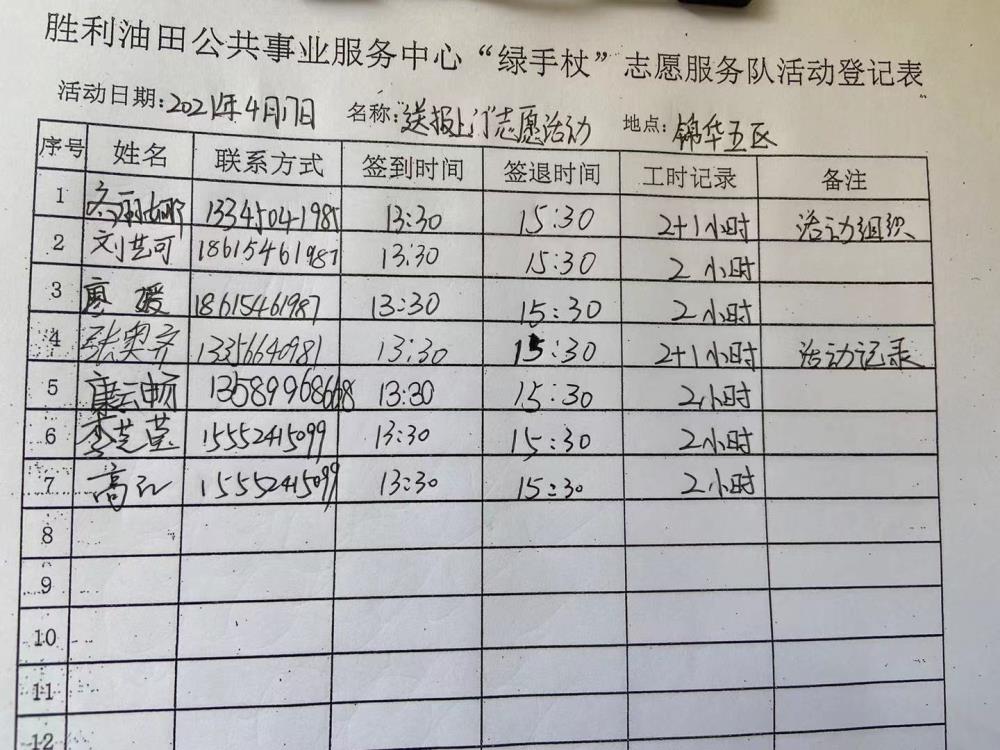 胜利油田公共事业服务中心“绿手杖”志愿服务队活动登记表
活动日期:2021年4月17日 名称:送报上门志愿活动 地点:锦华五区
序号 姓名 联系方式 签到时间 签退时间 工时记录 备注
1 13345041985 13:30 15:30 2+1小时 活动组织
2 刘艺可 18615461987 13:30 15:30 2小时
3 廖媛 18615461987 13:30 15:30 2小时
4 张奥齐 13356640981 13:30 15:30 2+1小时 活动记录
5 康云畅 13589968668 13:30 15:30 2小时
6 李芝莹 15552415099 13:30 15:30 2小时
7 高 15552415099 13:30 15:30 2小时
8
9
10
11
12